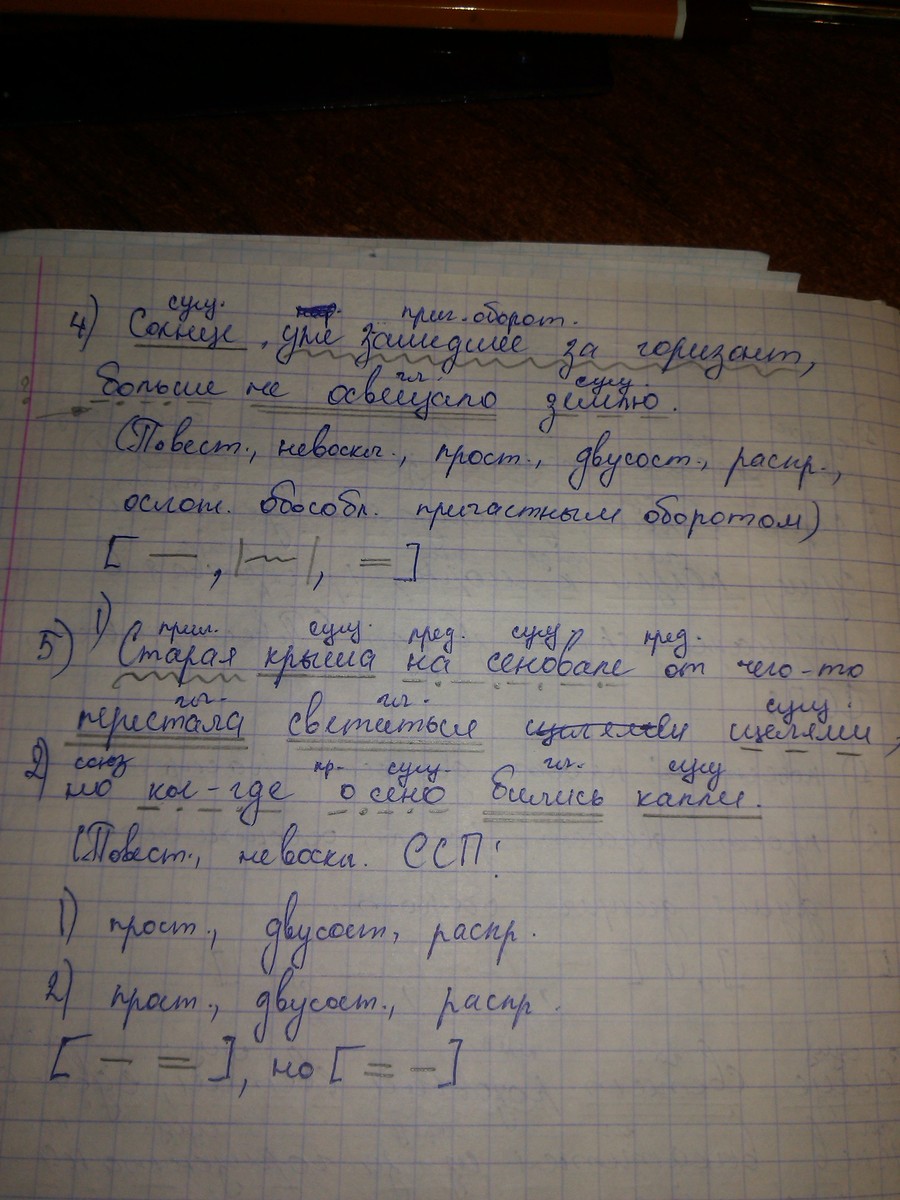 сущ. прич. оборот.
4) Солнце, уже зашедшее за горизонт,
гл. сущ.
больше не освещало землю.
(Повест., невоскл., прост., двусост., распр.,
ослож. обособл. причастным оборотом)
[ — , |~|, = ]
прил. сущ. пред. сущ. пред.
5) 1) Старая крыша на сеновале от чего-то
гл. гл. сущ.
перестала светиться щелями,
союз пр. сущ. гл. сущ
2) но кое-где о сено бились капли.
(Повест., невоскл. ССП:
1) прост., двусост, распр.
2) прост., двусост., распр.
[ — = ], но [ = — ]